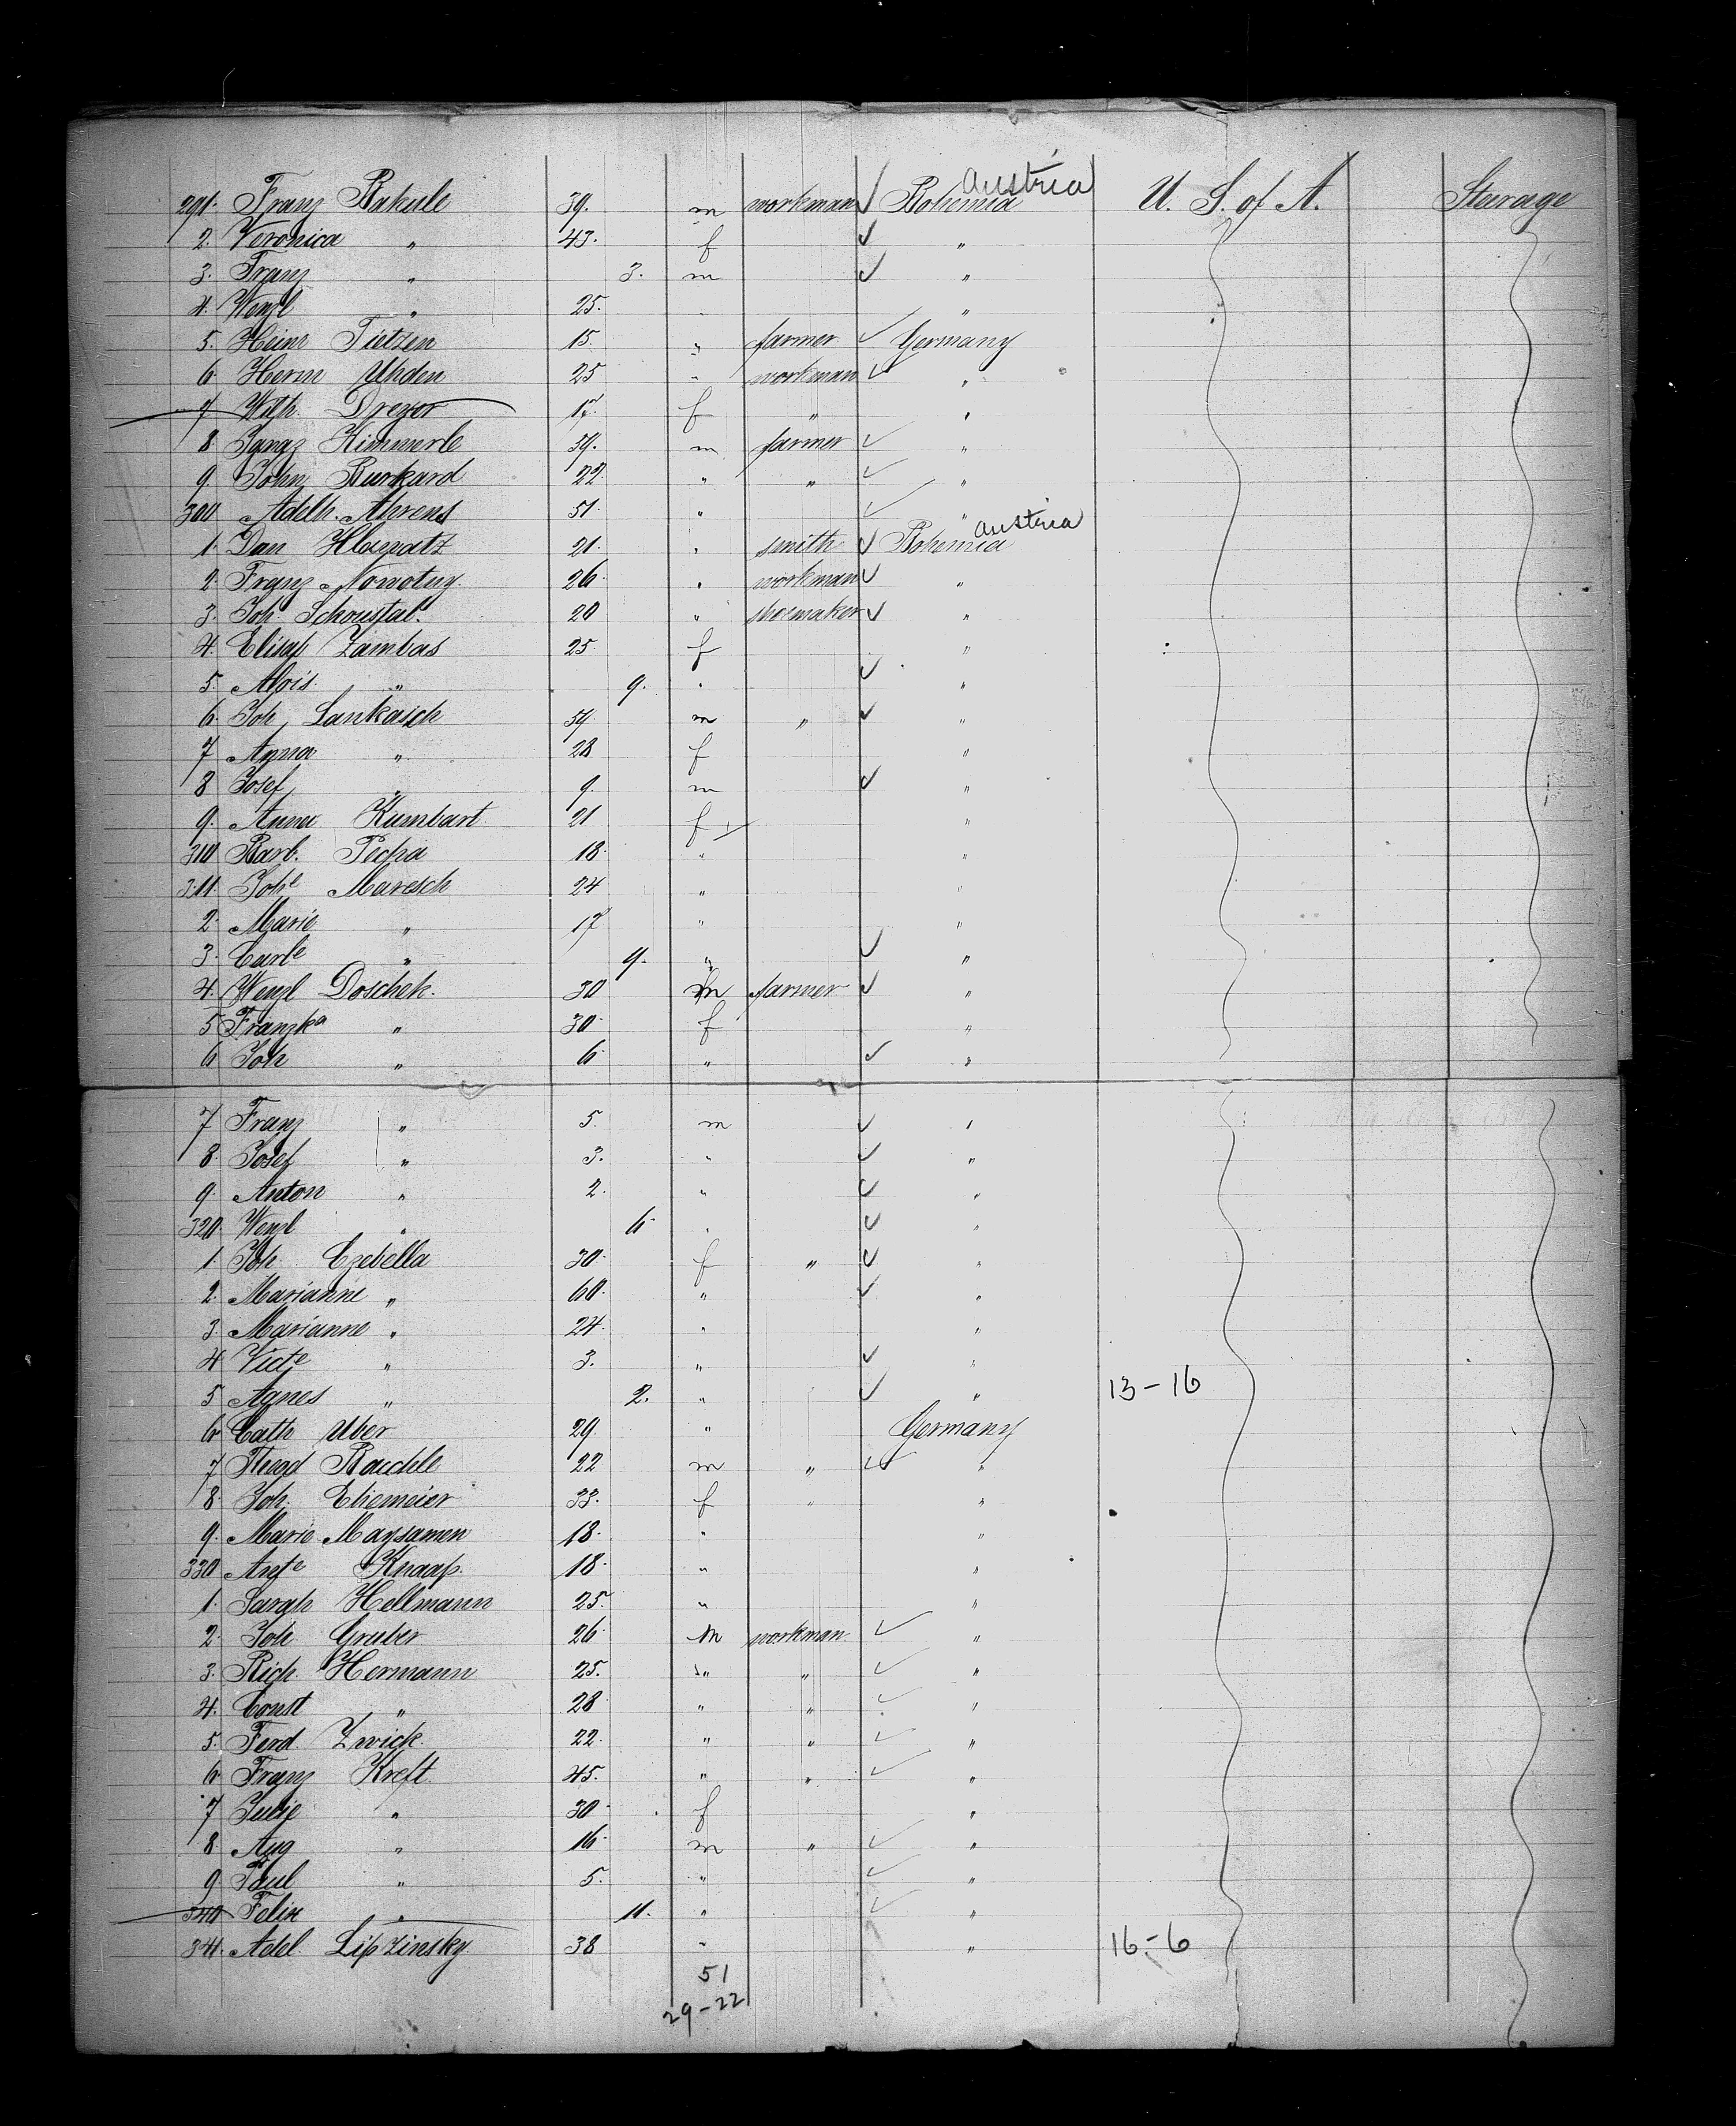 291. Franz Bakule 39. m workman ✓ Bohemia Austria U. S. of A. Steerage
2. Veronica " 43. f ✓ "
3. Franz " 3. m ✓ "
4. Wenzl " 25. "
5. Heinr Tietzen 15. " farmer ✓ Germany
6. Herm Uhden 25 " workman ✓ "
7 Wilh. Dreyer 17. f " "
8 Ignaz Kimmerle 39. m farmer ✓ "
9. John Burkard 22. " " ✓ "
300 Adelh. Ahrens 51. " ✓ "
1. Dan Hlawatz 21. " smith ✓ Bohemia Austria
2. Franz Nowotny 26. " workman ✓ "
3. Joh Schoustal. 20 " shoemaker ✓ "
4. Elisab Zambas 25. f "
5. Alois " 9. " ✓ "
6. Joh Lankasch 59. m " ✓ "
7 Anna " 28 f "
8 Josef " 9. m ✓ "
9. Anna Kumbart 21 f "
310 Barb. Pecha 18. " "
311. Johe Maresch 24 " "
2. Marie " 17 " "
3. Carle " 9. " ✓ "
4. Wenzl Doschek. 30 m farmer ✓ "
5 Franzka " 30. f "
6 Joh " 6. " ✓ "
7 Franz " 5. m ✓ "
8. Josef " 3. " ✓ "
9. Anton " 2. " ✓ "
320. Wenzl " 6 " ✓ "
1. Joh. Czebella 30. f " ✓ "
2. Marianne " 60. " ✓ "
3. Marianne " 24. " "
4 Victe " 3. " ✓ "
5 Agnes " 2. " ✓ " 13-16
6 Cath Uber 29. " Germany
7 Theod Baechle 22 m " ✓ "
8. Joh. Ehemeier 33. f " "
9. Marie Maysamen 18. " "
330 Ante Knaap. 18. " "
1. Sarah Hellmann 25. " "
2. Joh Gruber 26. m workman. ✓ "
3. Rich. Hermann 25. " " ✓ "
4. Const " 28 " " ✓ "
5. Ferd. Zwick. 22. " " ✓ "
6 Franz Kreft. 45. " " ✓ "
7 Julie " 30. f "
8. Aug " 16. m " ✓ "
9 Paul " 5. " ✓ "
340 Felix " 11. " ✓ "
341. Adel. Lipzinsky 38 " " 16-6
51
29-22